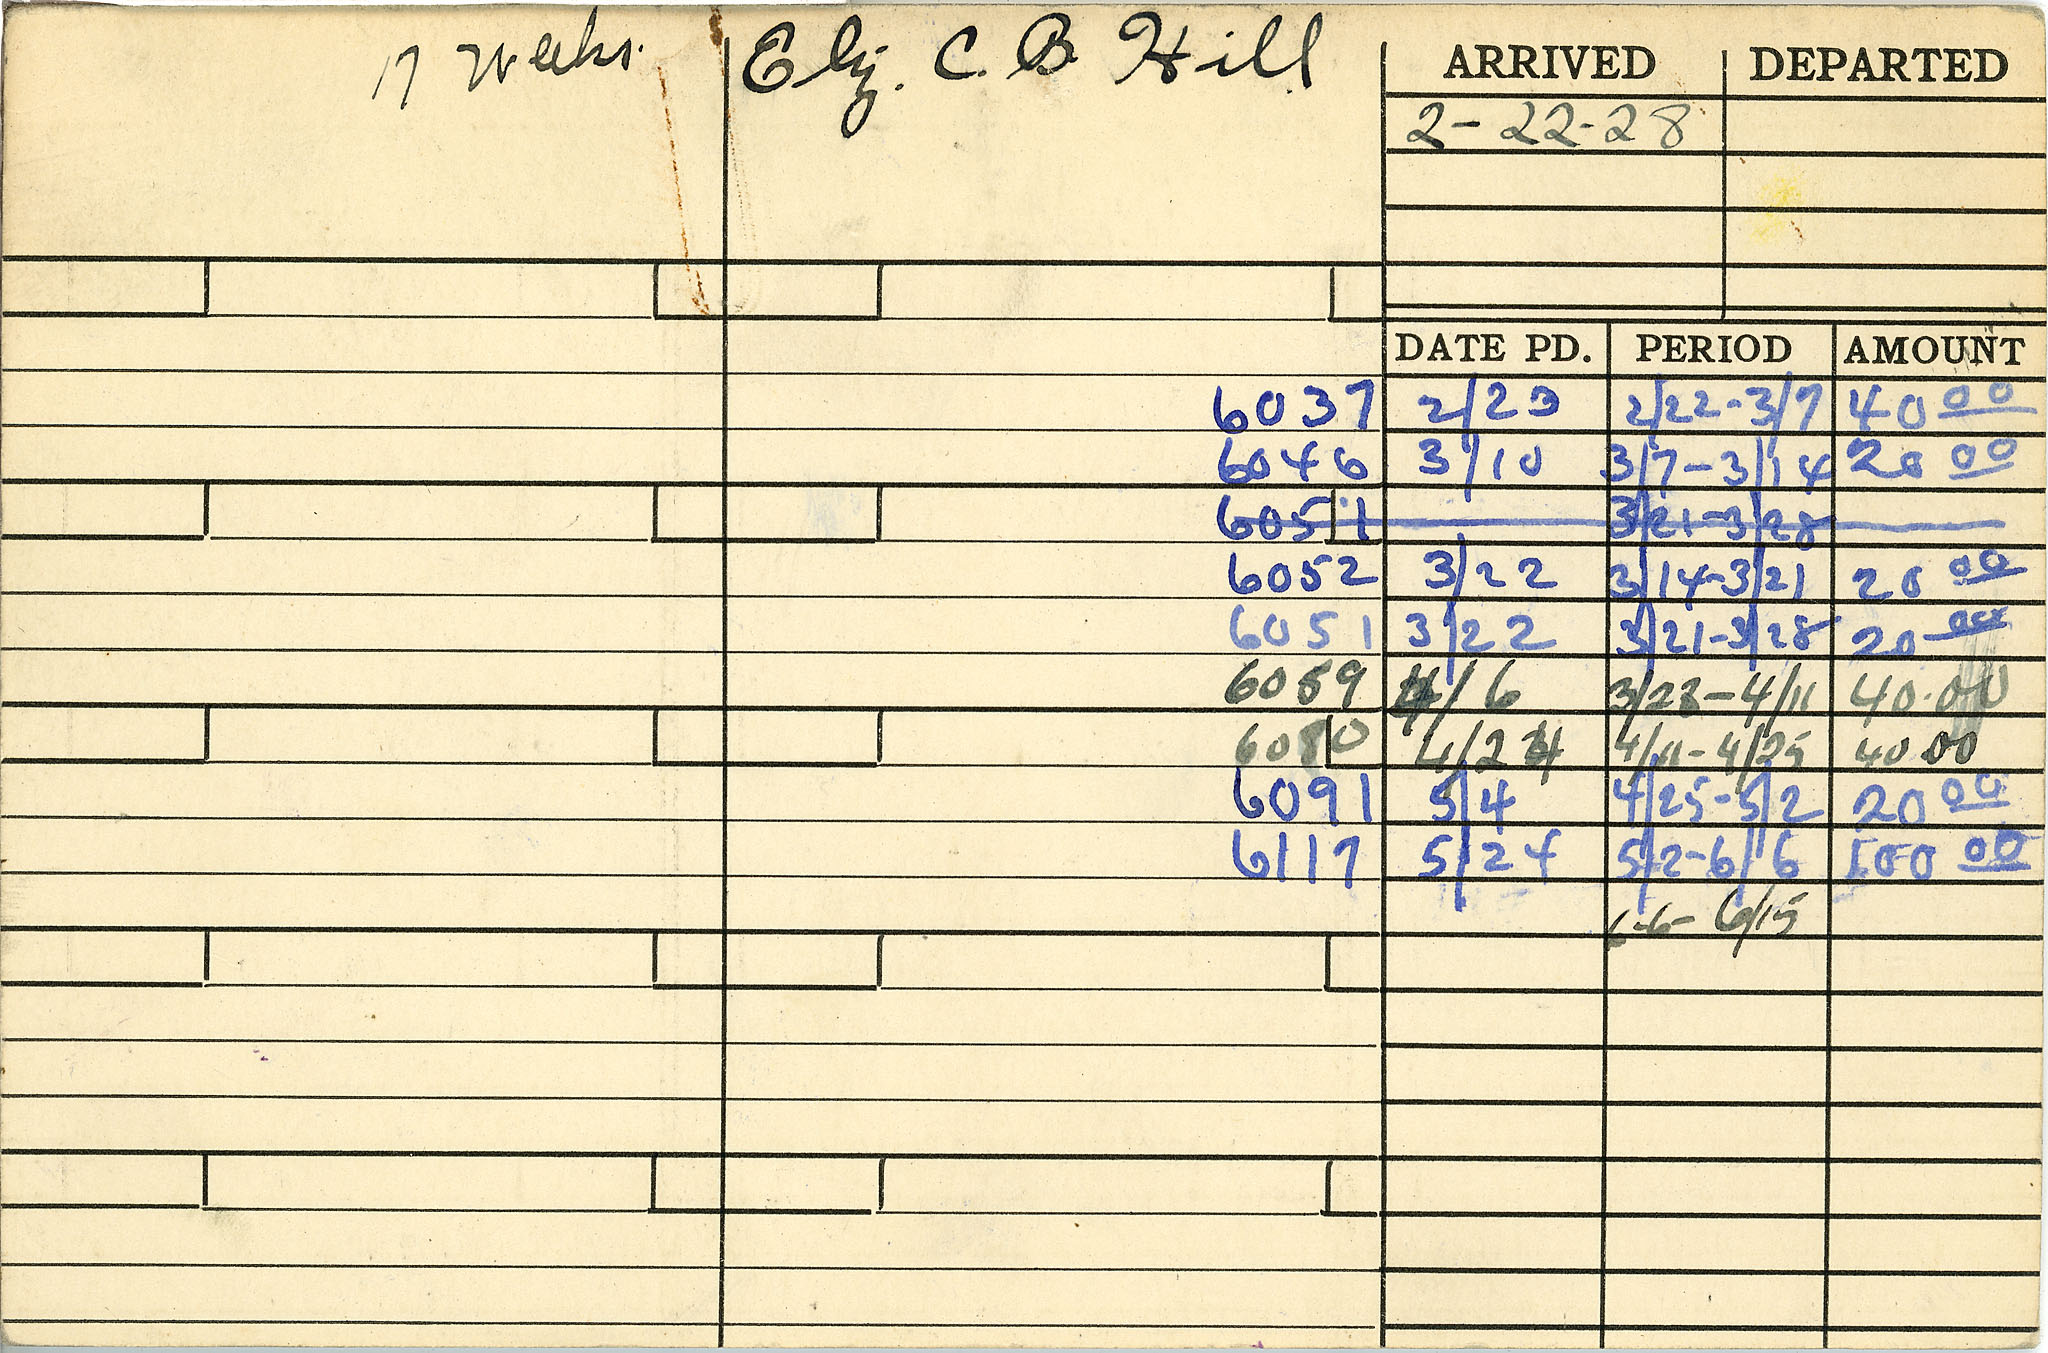 17 Weeks. Eliz. C. B. Hill ARRIVED DEPARTED
2-22-28
DATE PD. PERIOD AMOUNT
6037 2/23 2/22-3/7 40 00
6046 3/10 3/7-3/14 20 00
6051 3/21-3/28
6052 3/22 3/14-3/21 20 00
6051 3/22 3/21-3/28 20 00
6059 4/6 3/28-4/11 40.00
6080 4/24 4/11-4/25 40 00
6091 5/4 4/25-5/2 20 00
6117 5/24 5/2-6/6 100 00
6-6- 6/15